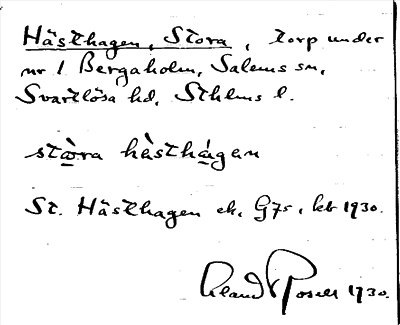 Hästhagen, Stora, torp under
nr 1 Bergaholm, Salems sn,
Svartlösa hd, Sthlms l.
stὰra hὰsthágan
St. Hästhagen ek. G7s, kbr 1930.
1930.